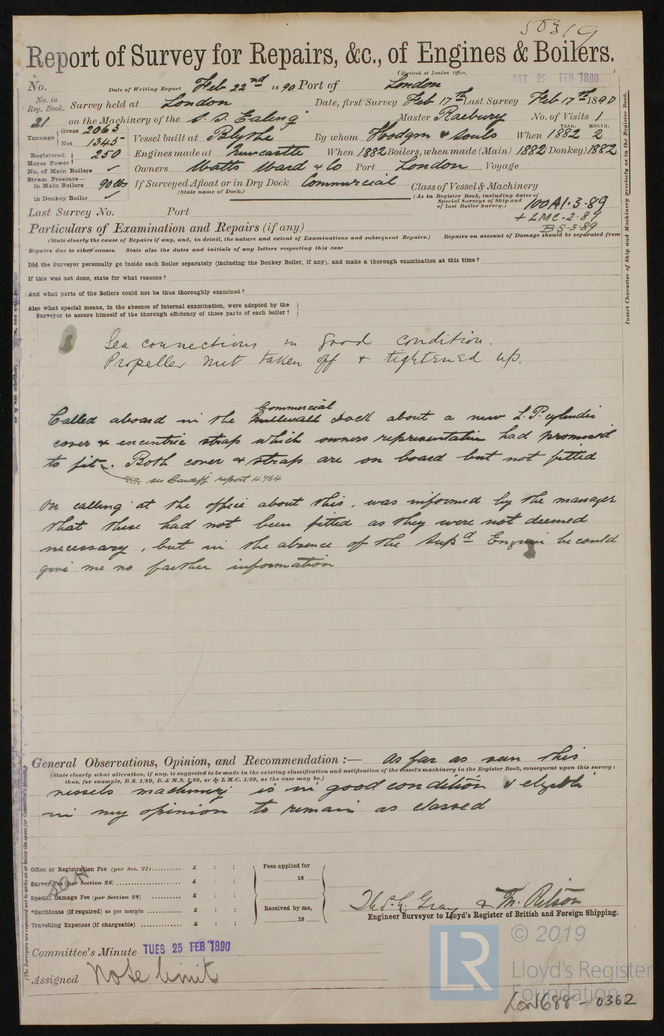 50319
Report of Survey for Repairs, &c., of Engines & Boilers.
(Received at London Office,
No. Date of Writing Report Feb 22nd 1890 Port of London SAT 22 FEB 1890
No. in Reg. Book. Survey held at London Date, first Survey Feb 17th Last Survey Feb 17th 1890
21 on the Machinery of the S.S. Ealing Master No. of Visits 1
Tonnage Gross 2063 Net 1345 Vessel built at Blythe By whom Hodgson & Souls When 1882 YEAR. 2 MONTH.
Registered Horse Power 250 Engines made at Newcastle When 1882 Boilers, when made (Main) 1882 (Donkey) 1882
No. of Main Boilers ✓ Owners Watts Ward & Co Port London Voyage
Steam Pressure— in Main Boilers 90 lbs If Surveyed Afloat or in Dry Dock Commercial Class of Vessel & Machinery
(State name of Dock.) (As in Register Book, including dates of Special Surveys of Ship and of last Boiler Survey.) 100A1·3·89
in Donkey Boiler ✓
+ LMC·2·89
Last Survey No. Port BS·3·89
Particulars of Examination and Repairs (if any)
(State clearly the cause of Repairs if any, and, in detail, the nature and extent of Examinations and subsequent Repairs.) Repairs on account of Damage should be separated from
Repairs due to other causes. State also the dates and initials of any letters respecting this case
Did the Surveyor personally go inside each Boiler separately (including the Donkey Boiler, if any), and make a thorough examination at this time?
If this was not done, state for what reasons?
And what parts of the Boilers could not be thus thoroughly examined?
Also what special means, in the absence of internal examination, were adopted by the
Surveyor to assure himself of the thorough efficiency of those parts of each boiler?
Insert Character of Ship and Machinery precisely as in the Register Book.
Sea connections in good condition.
Propeller nut taken off & tightened up.
Commercial
Called aboard in the Millwall Dock about a new L.P. cylinder
cover & eccentric strap which owners representative had promised
to fit. Both cover & straps are on board but not fitted
see Cardiff report 4964
On calling at the office about this, was informed by the manager
that these had not been fitted as they were not deemed
necessary, but in the absence of the Supd Engineer he could
give me no farther information
General Observations, Opinion, and Recommendation :— As far as seen this
(State clearly what alteration, if any, is suggested to be made in the existing classification and notification of the vessel's machinery in the Register Book, consequent upon this survey:
thus, for example, B.S. 1/89, B. & M.S. 1/89, or L.M.C. 1/89, as the case may be.)
vessels machinery is in good condition & eligible
in my opinion to remain as classed
Office or Registration Fee (per Sec. 27) £ : : Fees applied for
Survey Fee (per Section 28) £ : : 18
Special Damage Fee (per Section 28) £ : :
*Certificate (if required) as per margin £ : : Received by me,
Travelling Expenses (if chargeable) £ : : 18
Engineer Surveyor to Lloyd's Register of British and Foreign Shipping.
Committee's Minute TUES 25 FEB 1890
Assigned Note limit
© 2019
LR
Lloyd's Register
Foundation
LON688-0362